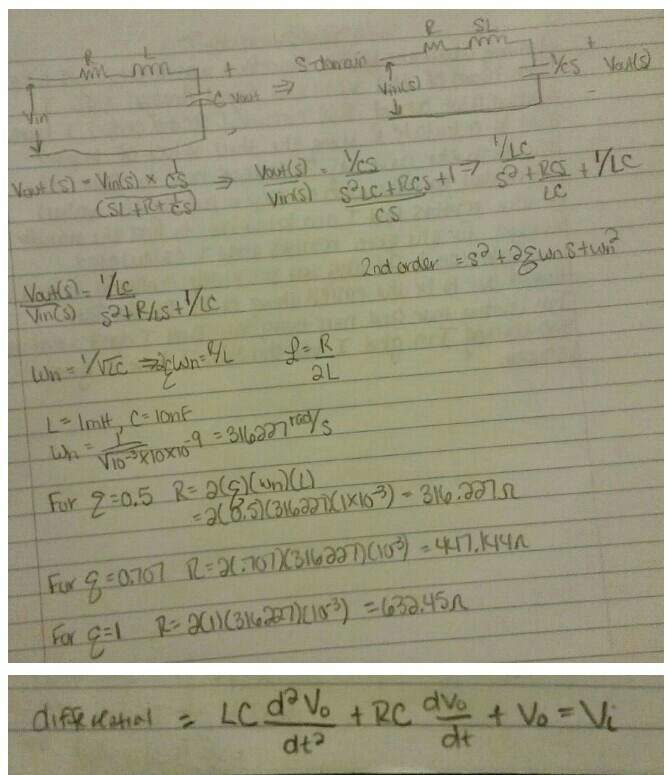 R L R SL
+ ⇒ S-domain +
Vin C Vout Vin(s) 1/CS Vout(s)
- -
Vout(s) = Vin(s) × 1/CS / (SL+R+1/CS) ⇒ Vout(s)/Vin(s) = 1/CS / (S²LC+RCS+1)/CS ⇒ 1/LC / S² + RCS/LC + 1/LC
2nd order = S² + 2ξWnS + Wn²
Vout(s)/Vin(s) = 1/LC / S²+R/LS+1/LC
Wn = 1/√LC ⇒ 2ξWn = R/L ξ = R/2L
L = 1mH, C = 10nF
Wn = 1/√10⁻³×10×10⁻⁹ = 316227 rad/s
For ξ=0.5 R = 2(ξ)(Wn)(L)
= 2(0.5)(316227)(1×10⁻³) = 316.227Ω
For ξ=0.707 R = 2(.707)(316227)(10⁻³) = 447.144Ω
For ξ=1 R = 2(1)(316227)(10⁻³) = 632.45Ω
differential = LC d²Vo/dt² + RC dVo/dt + Vo = Vi